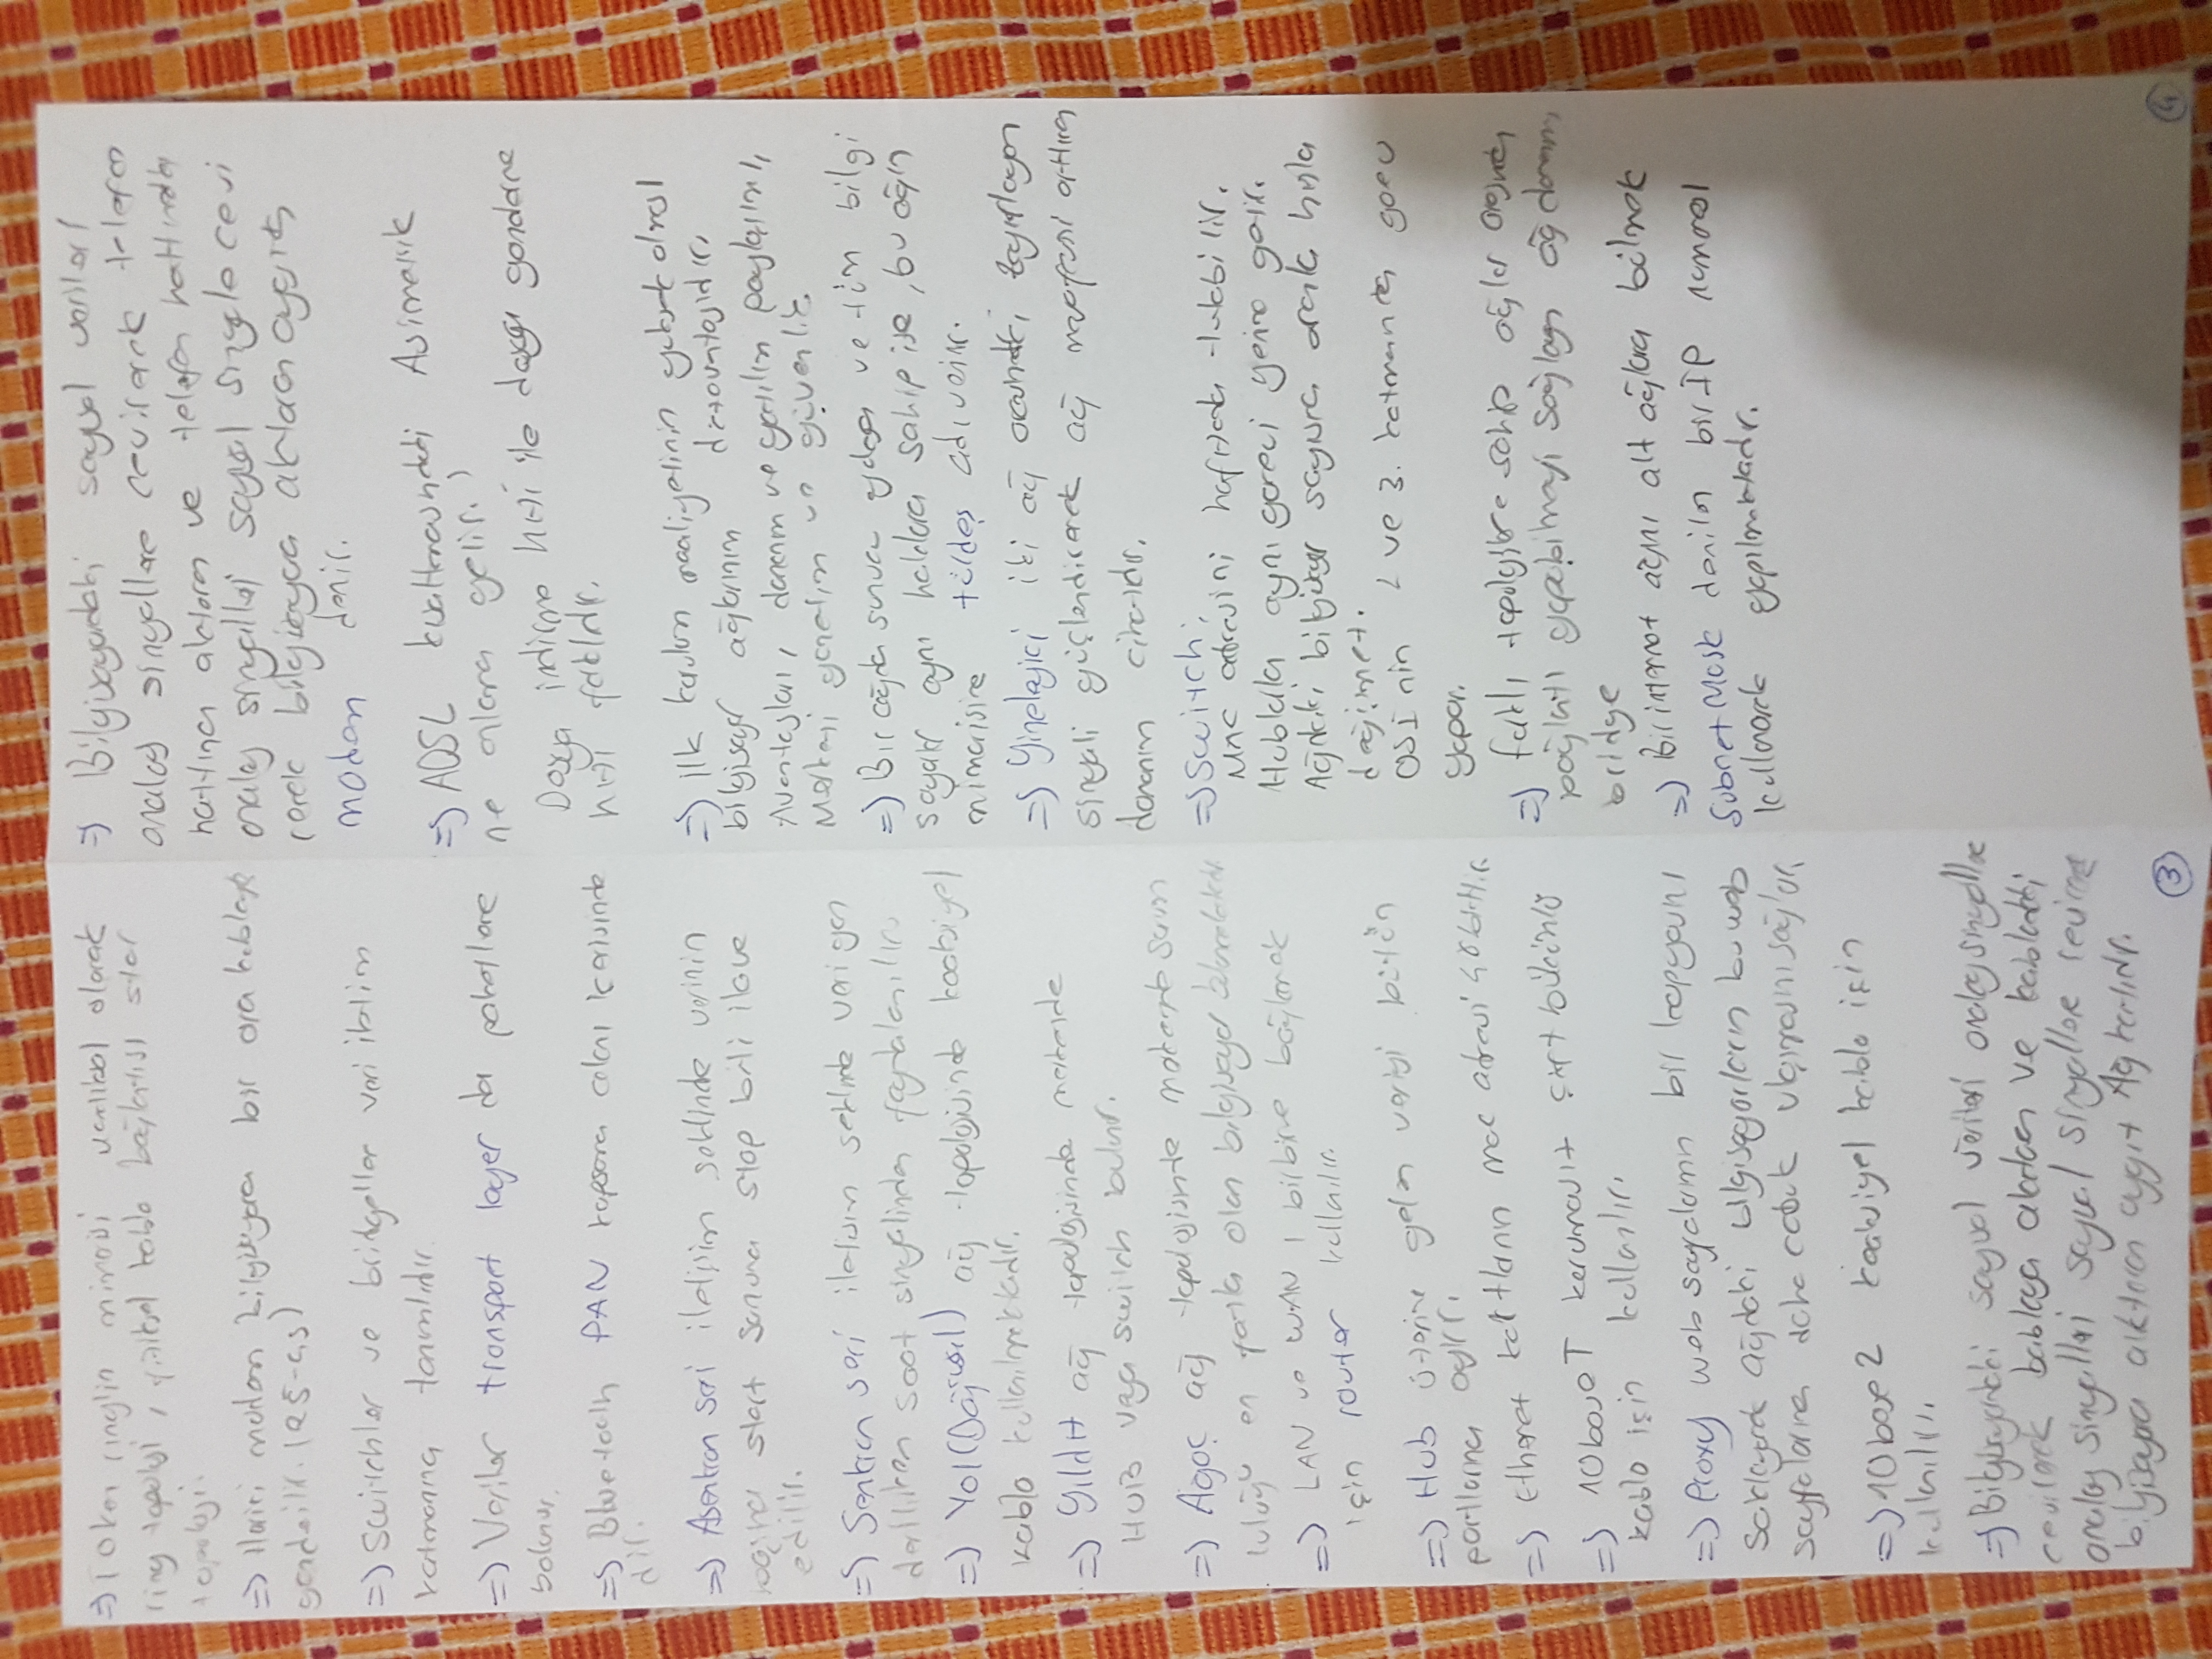 => Token ring'in mimarisi mantıksal olarak
ring topoloji, fiziksel kablo bağlantısı star
topoloji.
=> Harici modem bilgisayara bir ara kabloyla
gönderilir. (RS-
=> Switchler ve bridgeller veri iletim
katmanına tanımlıdır.
=> Veriler transport layer da paketlere
bölünür.
=> Bluetooth PAN kapsama alanı içerisinde
dir.
=> Asenkron seri iletişim şeklinde verinin
başına start sonuna stop biti ilave
edilir.
=> Senkron seri iletişim şeklinde veri gön
derilirken saat sinyalinden faydalanılır.
=> Yol (Doğrusal) ağ topolojisinde koaksiyel
kablo kullanılmaktadır.
=> Yıldız ağ topolojisinde merkezde
HUB veya switch bulunur.
=> Ağaç ağ topolojisinde merkezde sorum
luluğu en fazla olan bilgisayar bulunmaktadır.
=> LAN ve WAN ı birbirine bağlamak
için router kullanılır.
=> Hub üzerine gelen veriyi bütün
portlarına ayırır.
=> Ethernet kartların mac adresi 48 bittir.
=> 10baseT korumasız çift bükümlü
kablo için kullanılır.
=> Proxy web sayfalarının bir kopyasını
saklayarak ağdaki bilgisayarların bu web
sayfalarına daha çabuk ulaşmasını sağlar.
=> 10base2 koaksiyel kablo için
kullanılır.
=> Bilgisayardaki sayısal verileri analog sinyallere
çevirerek kabloya aktaran ve kablodaki
analog sinyalleri sayısal sinyallere çevirerek
bilgisayara aktaran aygıt Ağ kartıdır.
3
=> Bilgisayardaki sayısal verileri
analog sinyallere çevirerek telefon
hattına aktaran ve telefon hattındaki
analog sinyalleri sayısal sinyale çevi
rerek bilgisayara aktaran aygıta
modem denir.
=> ADSL kısaltmasındaki Asimetrik
ne anlama gelir?
Dosya indirme hızı ile dosya gönderme
hızı farklıdır.
=> ilk kurulum maaliyetinin yüksek olması
bilgisayar ağlarının dezavantajıdır.
Avantajları, donanım ve yazılım paylaşımı,
Merkezi yönetim ve güvenlik
=> Bir ağda sunucu yoksa ve tüm bilgi
sayar aynı haklara sahip ise, bu ağın
mimarisine türdeş adı verilir.
=> Yineleyici iki ağ arasındaki zayıflayan
sinyali güçlendirerek ağ mesafesini arttıran
donanım cihazıdır.
=> Switch;
Mac adresini hafızada tutabilir.
Hublarla aynı görevi yerine getirir.
Ağdaki bilgisayar sayısına oranla hızla
değişmez.
OSI nin 2 ve 3. katmanında görev
yapar.
=> farklı topolojilere sahip ağlar arasında
bağlantı yapabilmeyi sağlayan ağ donanımı
bridge
=> Bir internet ağını alt ağlara bölmek
Subnet Mask denilen bir IP numarası
kullanarak yapılmaktadır.
4